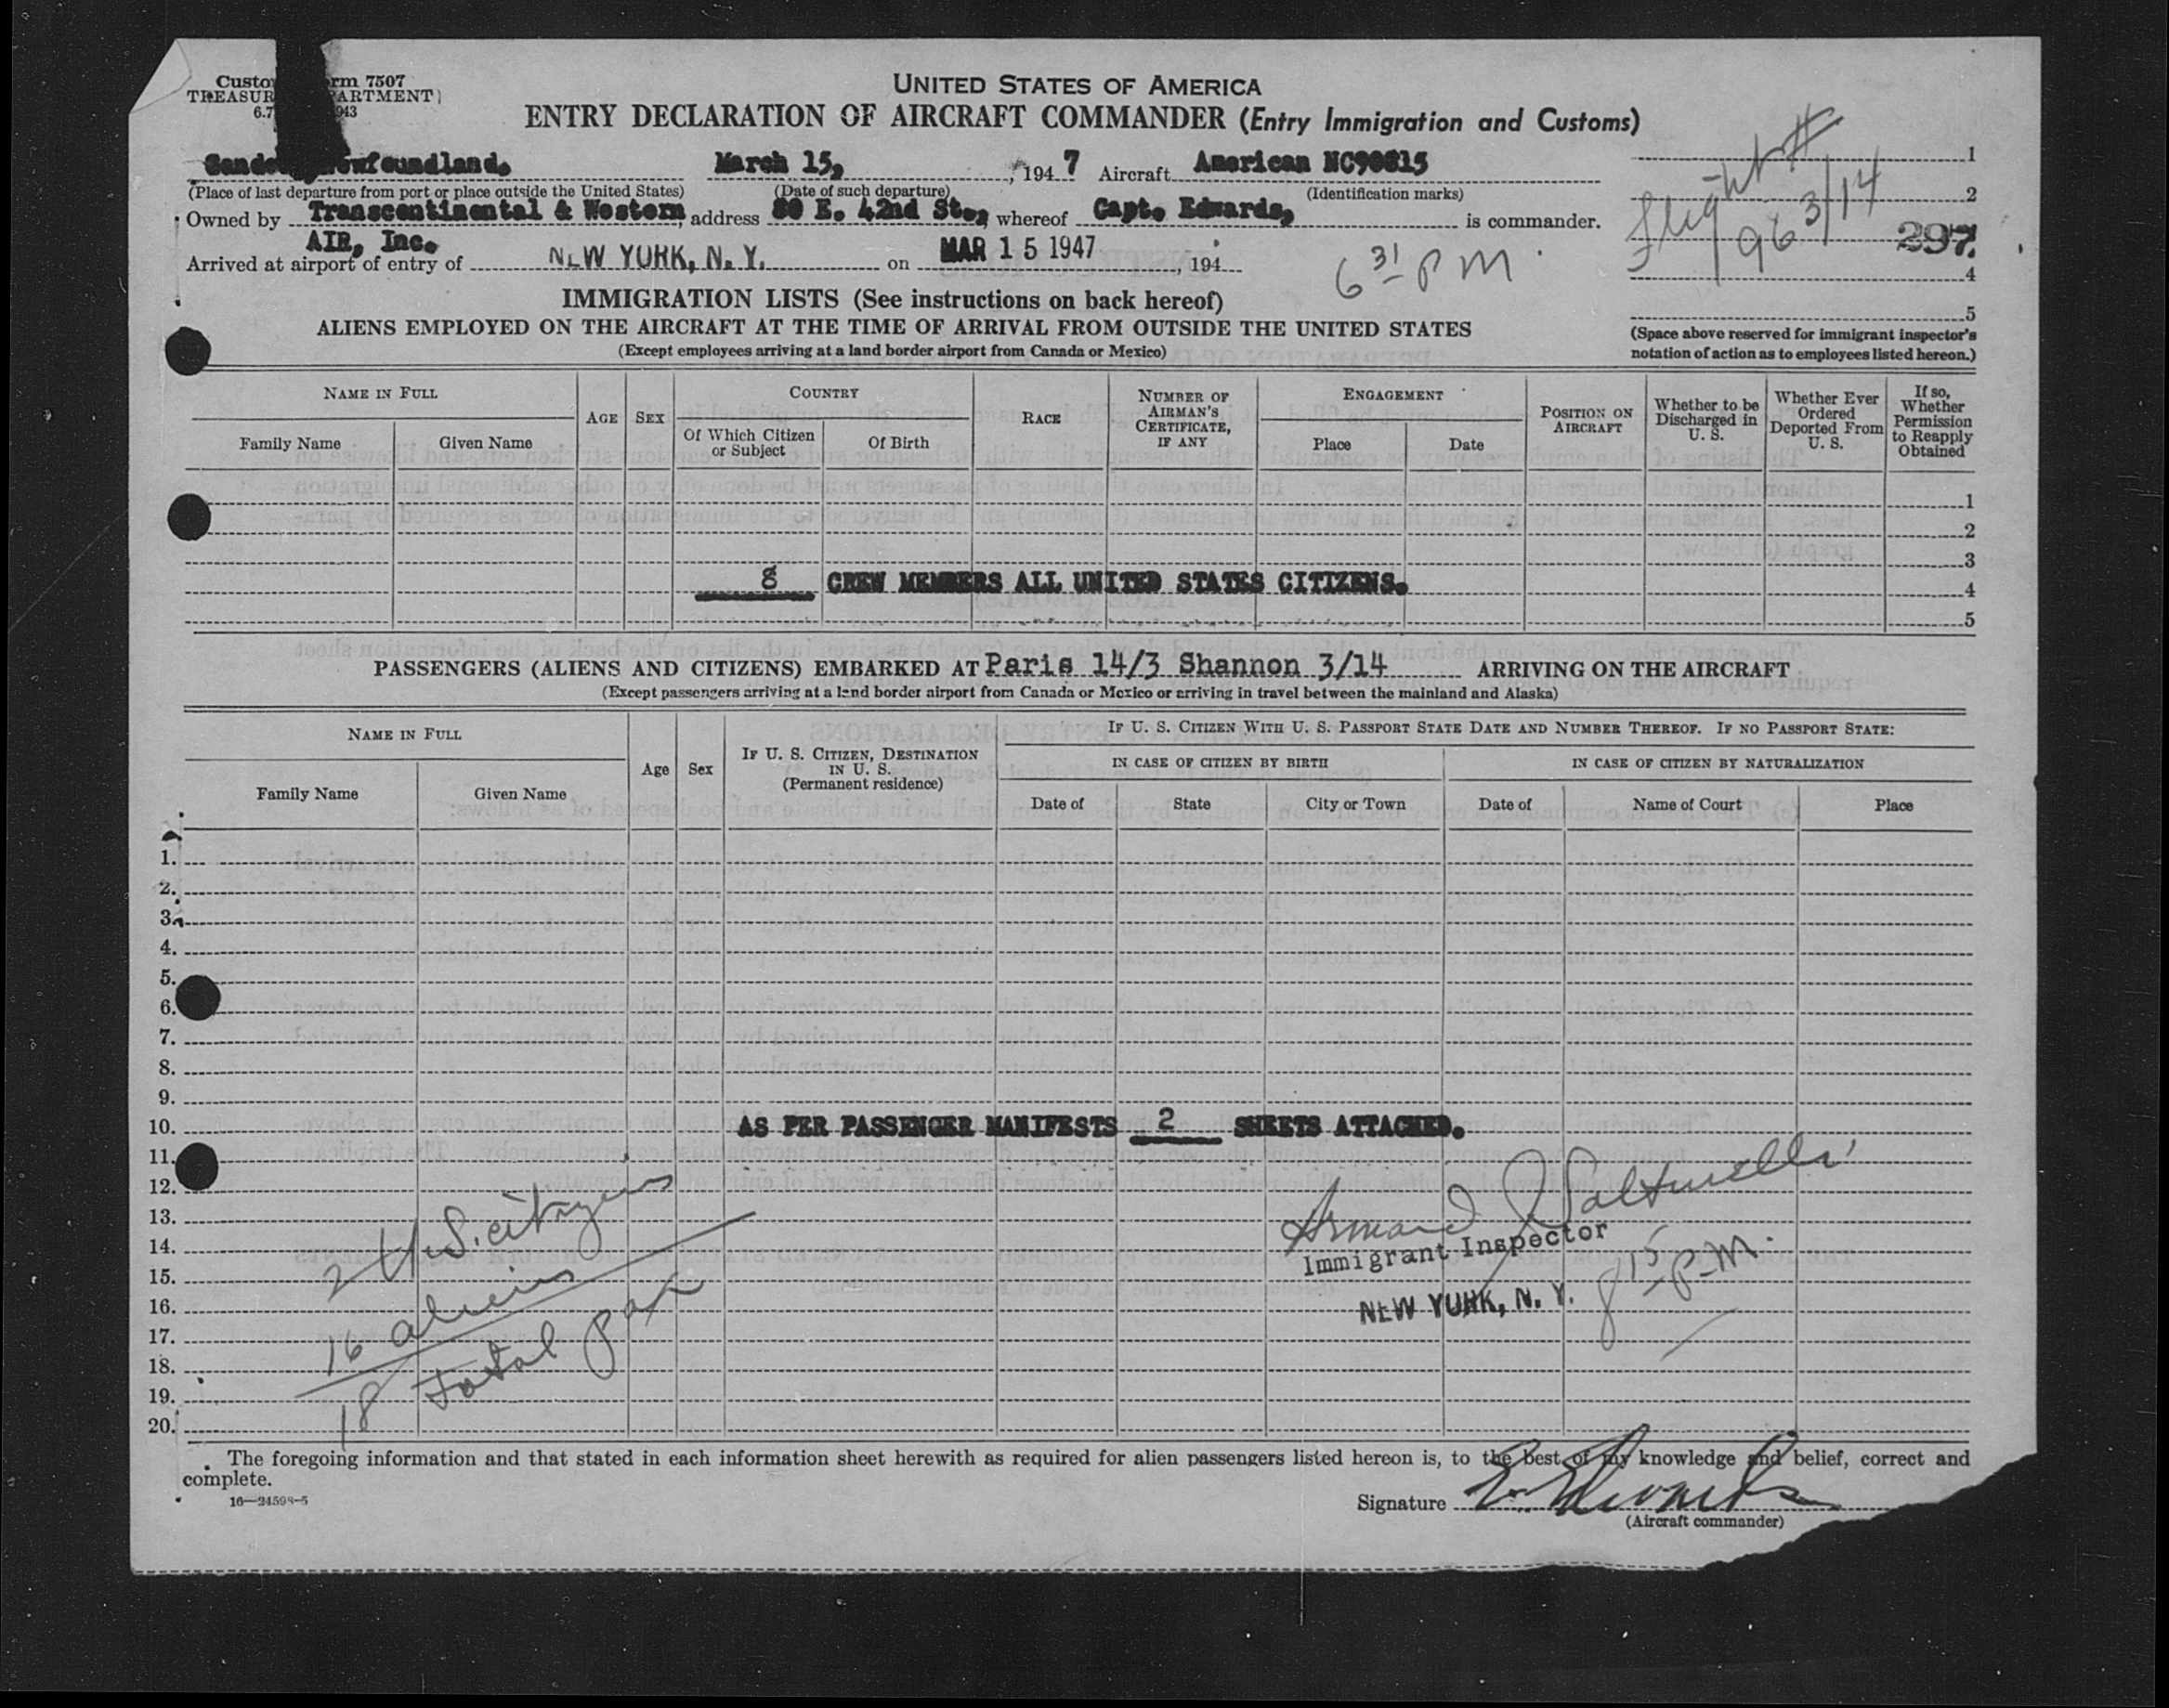 Custo rm 7507
TREASUR ARTMENT)
6.7 943
UNITED STATES OF AMERICA
ENTRY DECLARATION OF AIRCRAFT COMMANDER (Entry Immigration and Customs)
Gande wfoundland, March 15, , 1947 Aircraft American NC90815
(Place of last departure from port or place outside the United States) (Date of such departure) (Identification marks)
Owned by Transcontinental & Western, address 80 E. 42nd St., whereof Capt. Edwards, is commander.
AIR, Inc.
Arrived at airport of entry of NEW YORK, N. Y. on MAR 15 1947, 194
6 31 PM
Flight # 963/14
297.
1
2
4
5
(Space above reserved for immigrant inspector's
notation of action as to employees listed hereon.)
IMMIGRATION LISTS (See instructions on back hereof)
ALIENS EMPLOYED ON THE AIRCRAFT AT THE TIME OF ARRIVAL FROM OUTSIDE THE UNITED STATES
(Except employees arriving at a land border airport from Canada or Mexico)
NAME IN FULL
Family Name Given Name
AGE SEX
COUNTRY
Of Which Citizen or Subject Of Birth
RACE
NUMBER OF AIRMAN'S CERTIFICATE, IF ANY
ENGAGEMENT
Place Date
POSITION ON AIRCRAFT
Whether to be Discharged in U. S.
Whether Ever Ordered Deported From U. S.
If so, Whether Permission to Reapply Obtained
1
2
3
8 CREW MEMBERS ALL UNITED STATES CITIZENS.
4
5
PASSENGERS (ALIENS AND CITIZENS) EMBARKED AT Paris 14/3 Shannon 3/14 ARRIVING ON THE AIRCRAFT
(Except passengers arriving at a land border airport from Canada or Mexico or arriving in travel between the mainland and Alaska)
NAME IN FULL
Family Name Given Name
Age Sex
IF U. S. CITIZEN, DESTINATION IN U. S.
(Permanent residence)
IF U. S. CITIZEN WITH U. S. PASSPORT STATE DATE AND NUMBER THEREOF. IF NO PASSPORT STATE:
IN CASE OF CITIZEN BY BIRTH IN CASE OF CITIZEN BY NATURALIZATION
Date of State City or Town Date of Name of Court Place
1.
2.
3.
4.
5.
6.
7.
8.
9.
10. AS PER PASSENGER MANIFESTS 2 SHEETS ATTACHED.
11.
12.
13.
14.
15.
16.
17.
18.
19.
20.
2 U.S. citizens
16 aliens
18 total pax
Armand
Immigrant Inspector
NEW YORK, N. Y.
8 15 P.M.
The foregoing information and that stated in each information sheet herewith as required for alien passengers listed hereon is, to the best of my knowledge and belief, correct and
complete.
16—24598-5
Signature E. Edwards
(Aircraft commander)